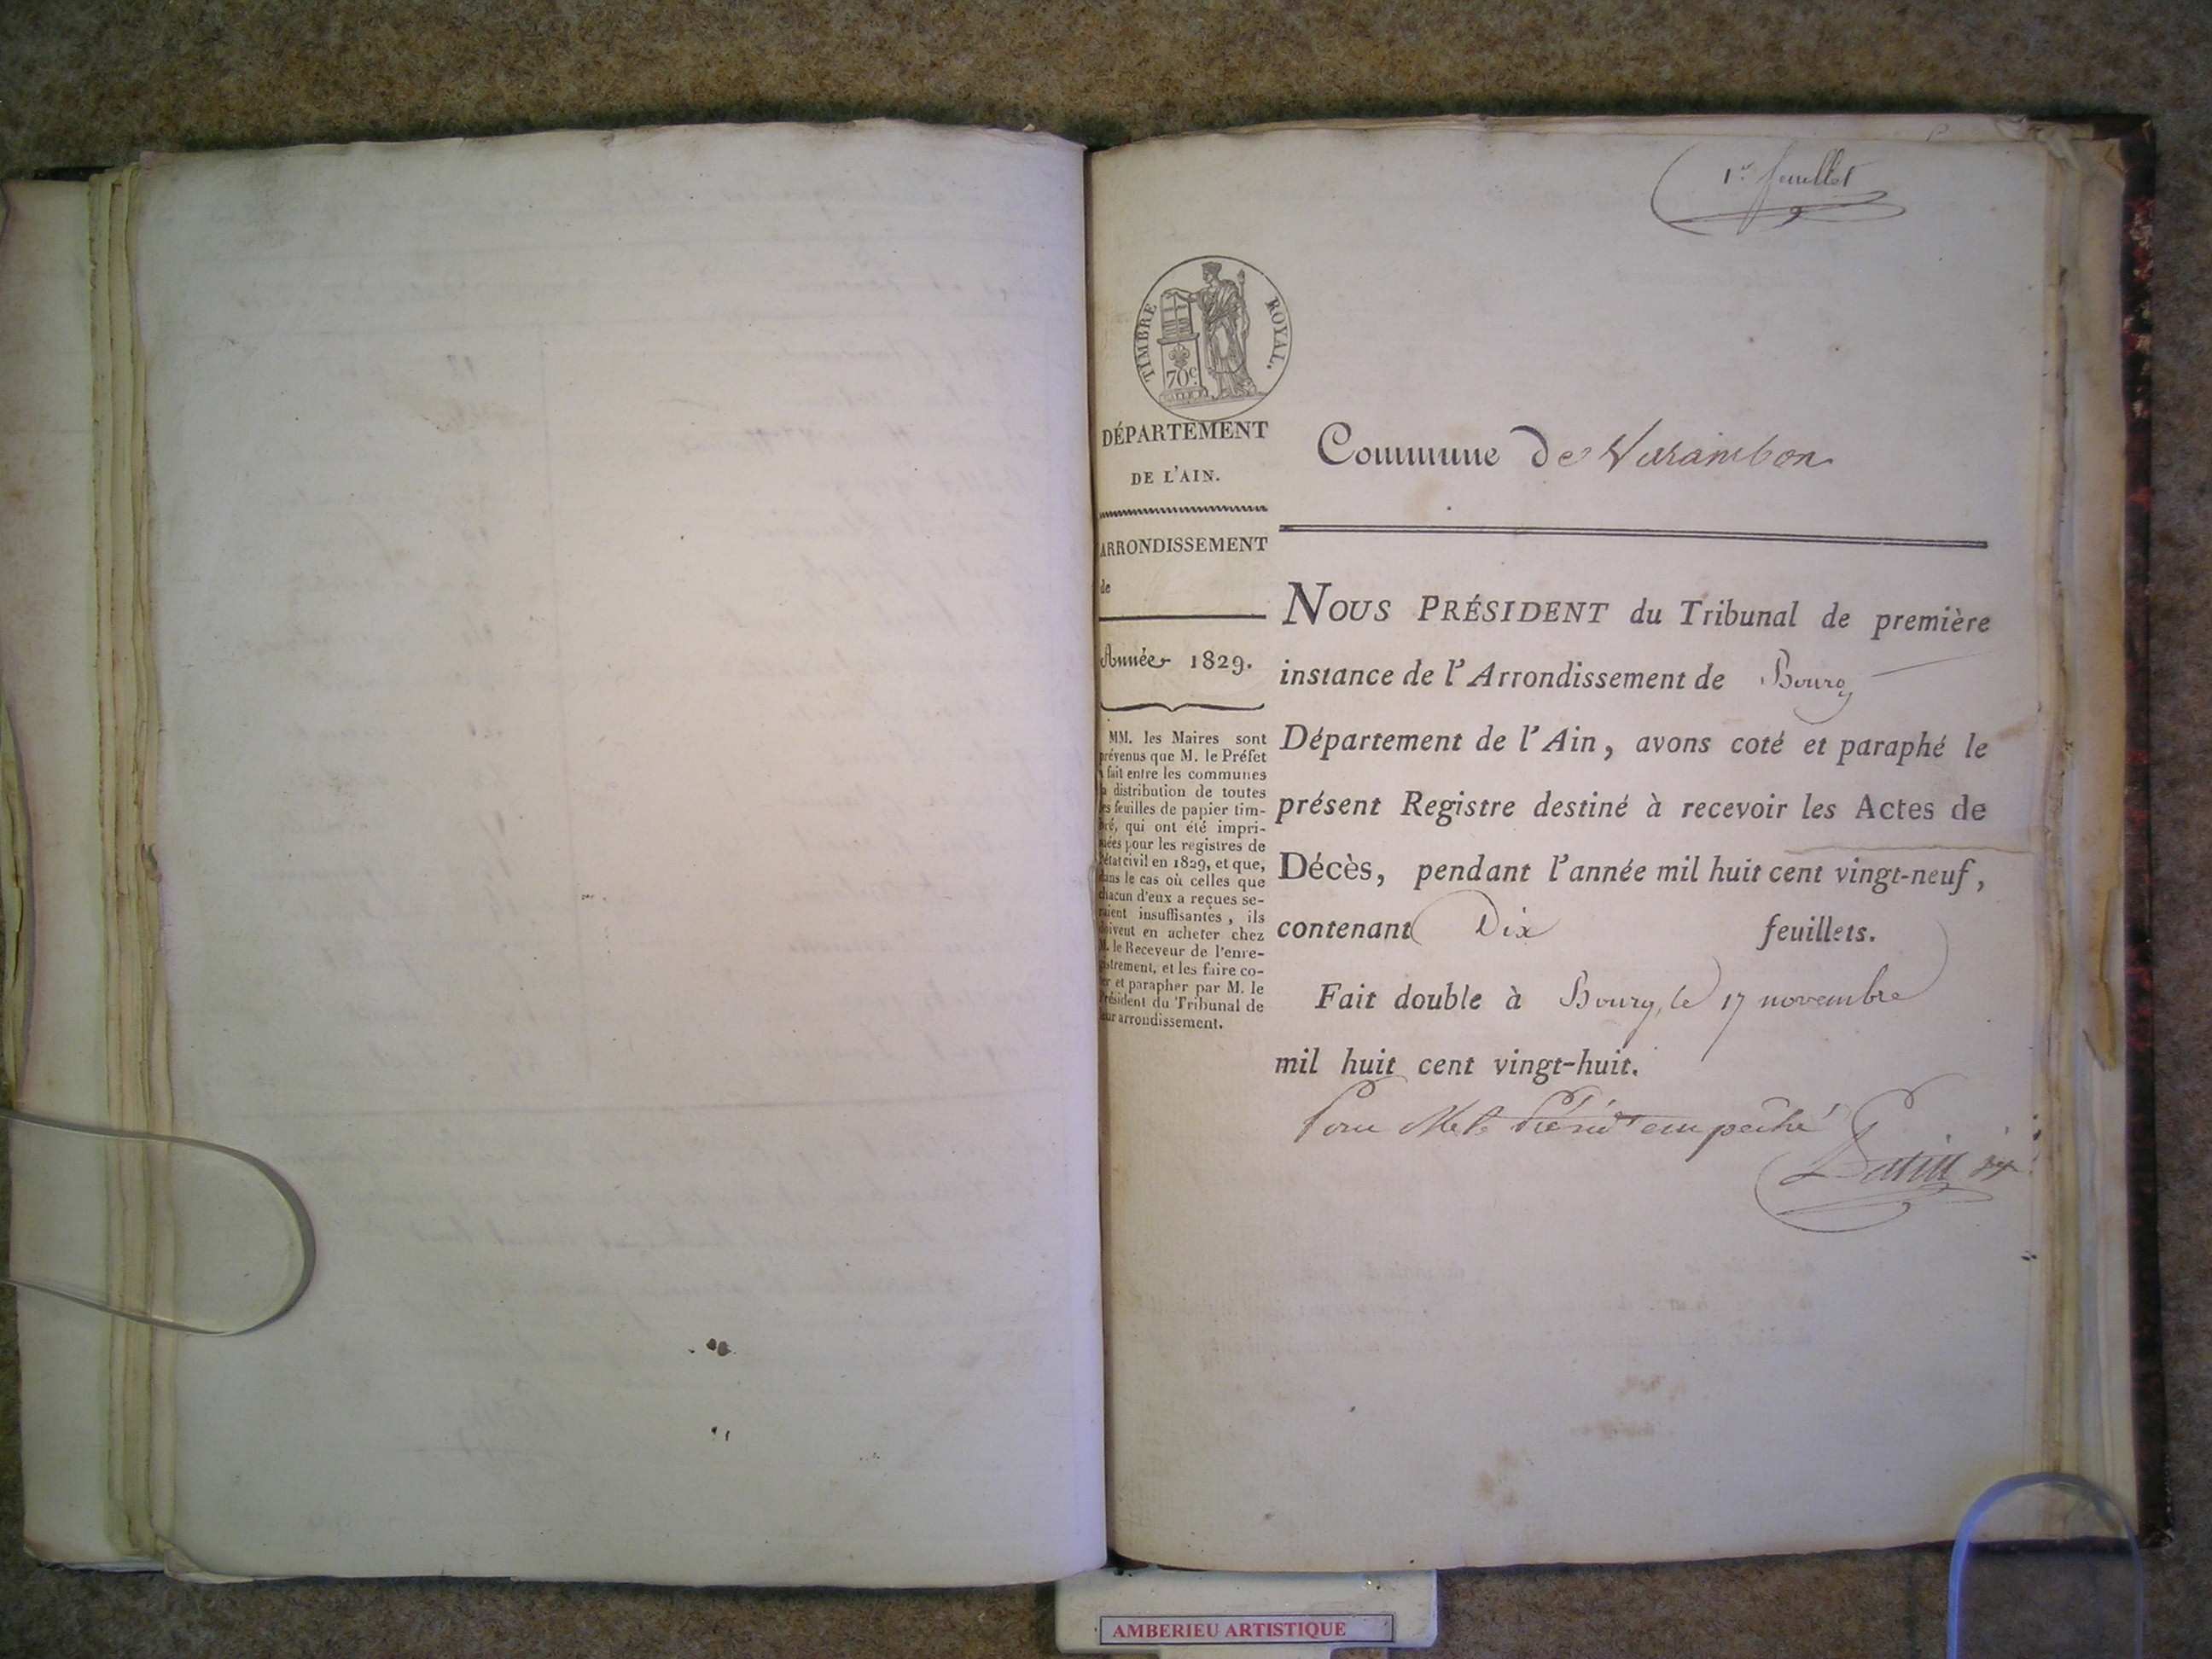 1er feuillet
TIMBRE ROYAL.
70c.
DÉPARTEMENT
DE L'AIN.
ARRONDISSEMENT
de
Année 1829.
MM. les Maires sont
prévenus que M. le Préfet
a fait entre les communes
la distribution de toutes
les feuilles de papier tim-
bré, qui ont été impri-
mées pour les registres de
l'état civil en 1829, et que,
dans le cas où celles que
chacun d'eux a reçues se-
raient insuffisantes, ils
doivent en acheter chez
M. le Receveur de l'enre-
gistrement, et les faire co-
ter et parapher par M. le
Président du Tribunal de
leur arrondissement.
Commune de Varambon
NOUS PRÉSIDENT du Tribunal de première
instance de l'Arrondissement de Bourg
Département de l'Ain, avons coté et paraphé le
présent Registre destiné à recevoir les Actes de
Décès, pendant l'année mil huit cent vingt-neuf,
contenant Dix feuillets.
Fait double à Bourg, le 17 novembre
mil huit cent vingt-huit.
Pour Mr le Présidt empêché
AMBERIEU ARTISTIQUE